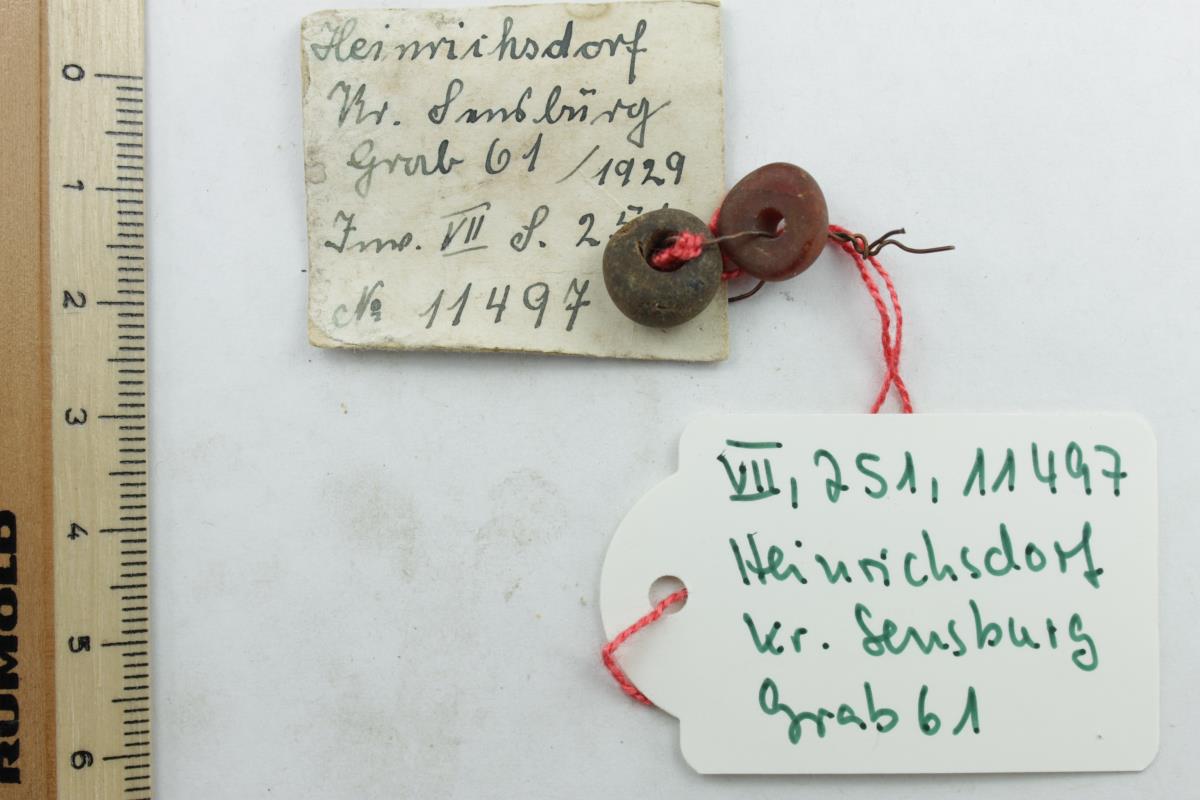 Heinrichsdorf
Kr. Sensbŭrg
Grab 61 /1929
Inv. VII S. 251
№ 11497
VII, 251, 11497
Heinrichsdorf
Kr. Sensburg
Grab 61
0
1
2
3
4
5
6
RUMOLD